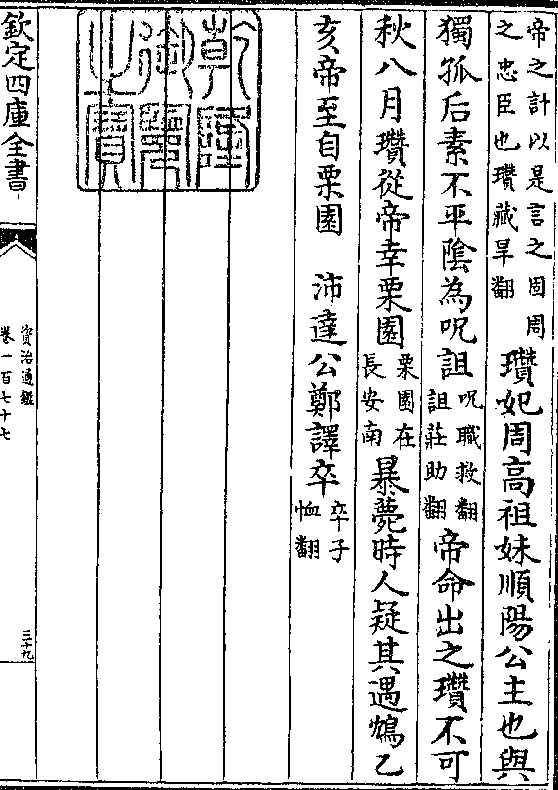 帝之計以是言之固周之忠臣也瓚藏旱翻瓚妃周高祖妹順陽公主也與
獨孤后素不平隂為呪詛呪職救翻詛莊助翻帝命出之瓚不可
秋八月瓚從帝幸栗園栗園在長安南暴薨時人疑其遇鴆乙
亥帝至自栗園　沛達公鄭譯卒卒子恤翻
乾隆御覽之寶
欽定四庫全書
資治通鑑
卷一百七十七
三十九